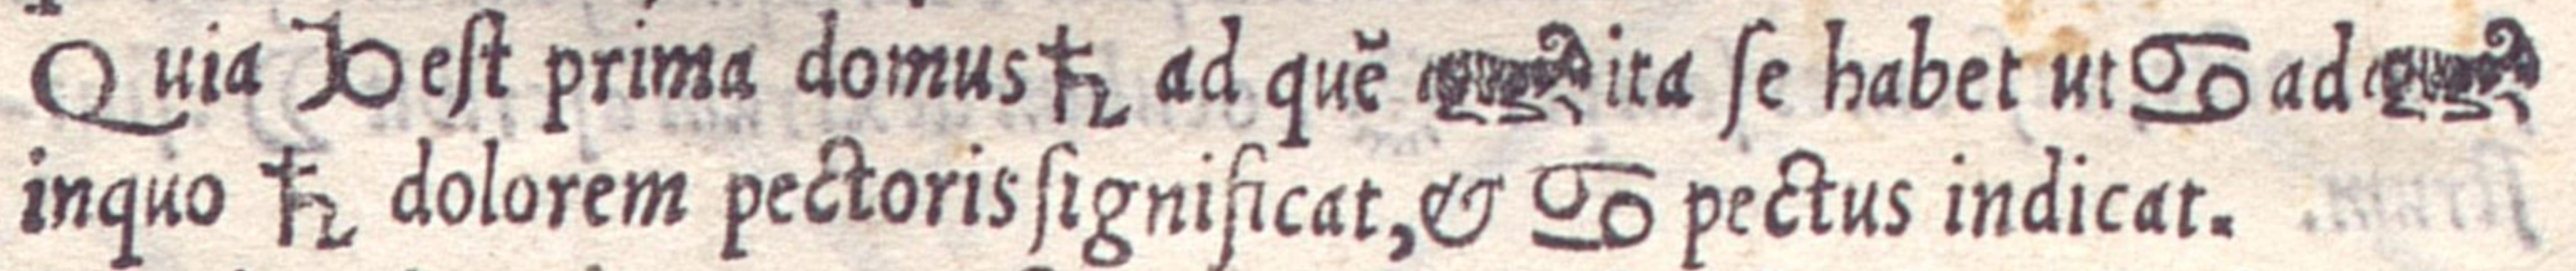 Quia ♑ est prima domus ♄ ad quẽ ita ſe habet ut ♋ ad
inquo ♄ dolorem pectoris ſignificat, & ♋ pectus indicat.